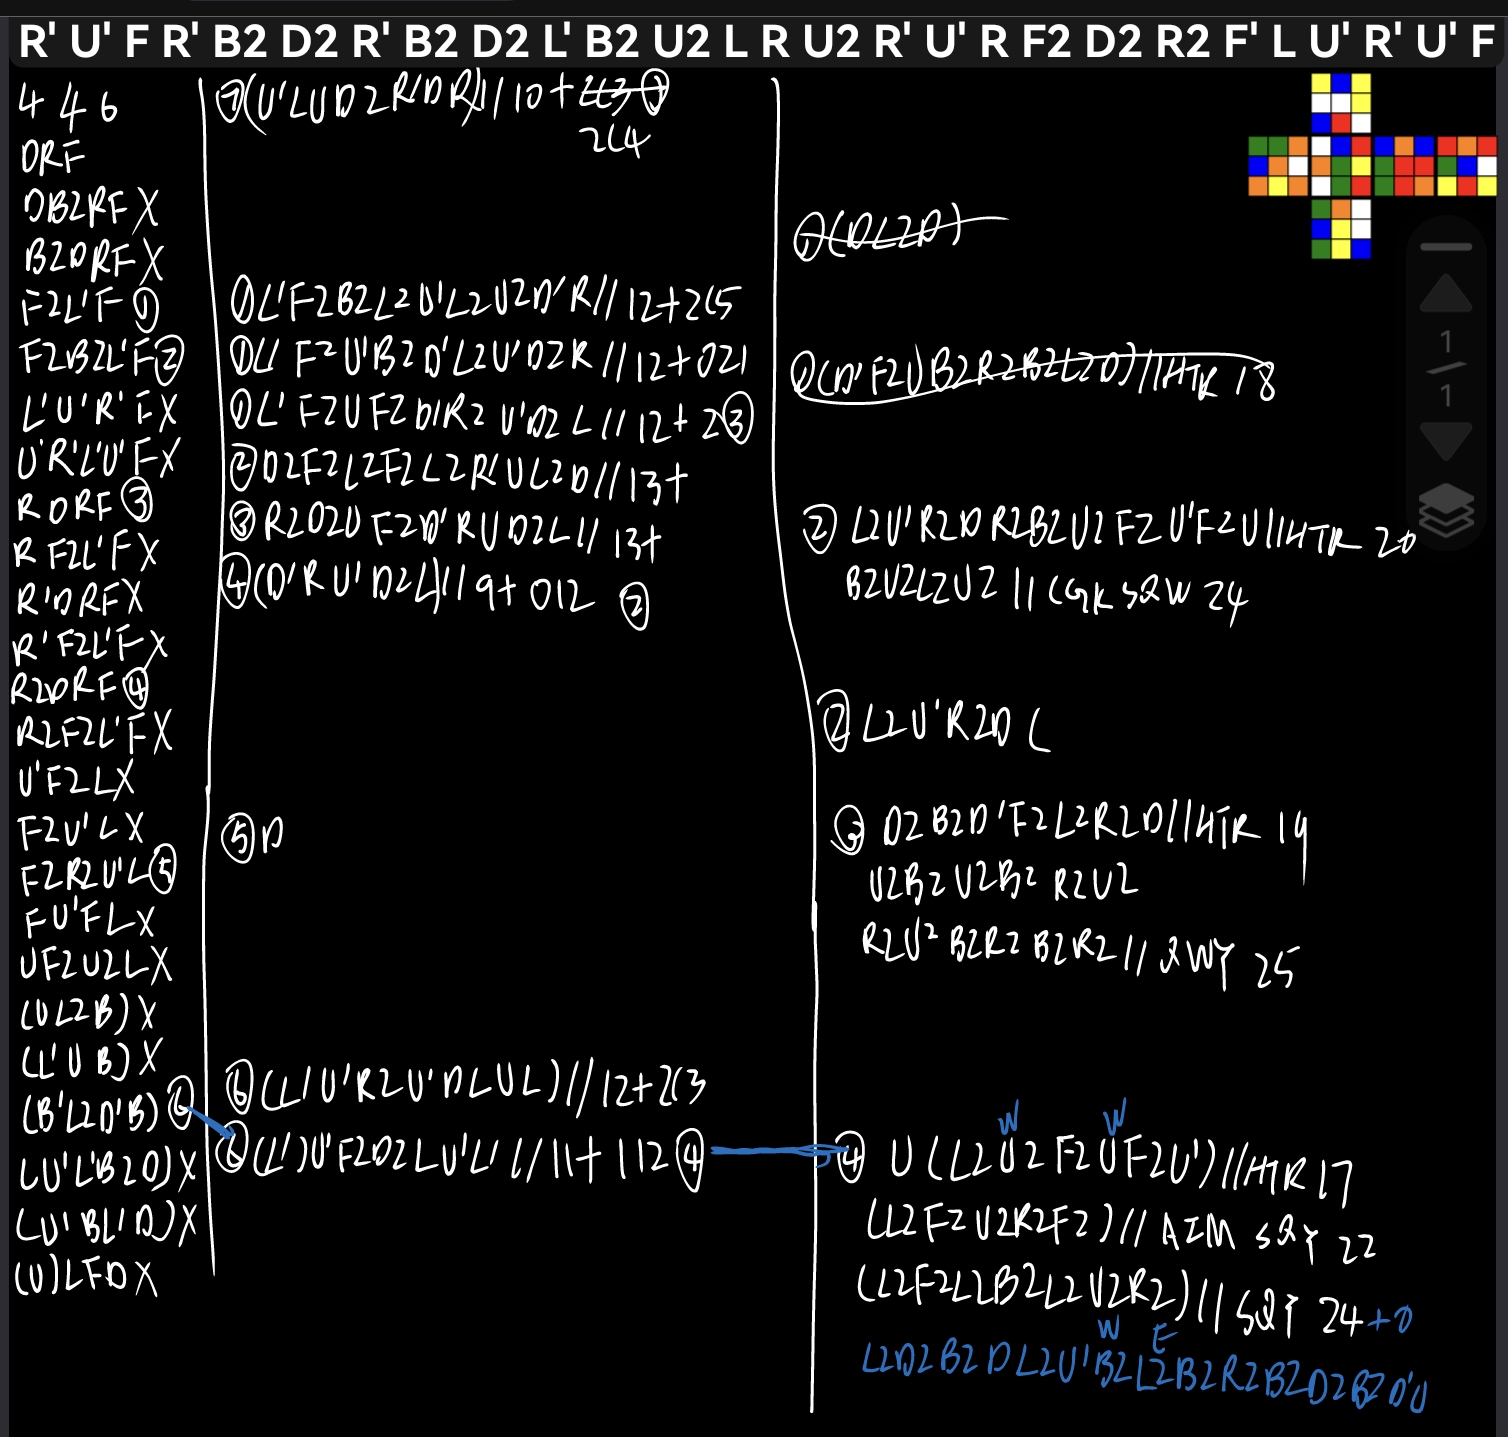 R' U' F R' B2 D2 R' B2 D2 L' B2 U2 L R U2 R' U' R F2 D2 R2 F' L U' R' U' F
4 4 6
DRF
DB2RF X
B2DRF X
F2L'F ①
F2B2L'F ②
L'U'R'F X
U'R'L'U'F X
RDRF ③
RF2L'F X
R'DRF X
R'F2L'F X
R2DRF ④
R2F2L'F X
U'F2L X
F2U'L X
F2R2U'L ⑤
FU'FL X
UF2U2L X
(UL2B) X
(L'UB) X
(B'L2D'B) ⑥
(U'L'B2D) X
(U'BL'D) X
(U)LFD X
⑦(U'LUD2R'DR)//10+2C3 ①
2C4
①L'F2B2L2U'L2U2D'R//12+2C5
①L' F2U'B2D'L2U'D2R//12+021
①L' F2UF2D'R2 U'D2L//12+2③
②D2F2L2F2L2R'UL2D//13+
③R2D2U F2D'RUD2L//13+
④(D'RU'D2L)//9+012 ②
⑤D
⑥(L'U'R2U'DLUL)//12+2C3
⑥(L')U'F2D2LU'L'//11+112 ④
①(DL2D)
②(D'F2UB2R2B2L2D)//HTR 18
② L2U'R2DR2B2U2F2U'F2U//HTR 20
B2U2L2U2 // CGK SQW 24
② L2U'R2D (
③ D2B2D'F2L2R2D//HTR 19
U2B2U2B2R2U2
R2U2B2R2B2R2//QWY 25
W W
④ U(L2U2F2UF2U')//HTR 17
(L2F2U2R2F2)// AIM SQY 22
(L2F2L2B2L2U2R2)//SQY 24+0
W E
L2D2B2DL2U'B2L2B2R2B2D2B2D'U
1
1